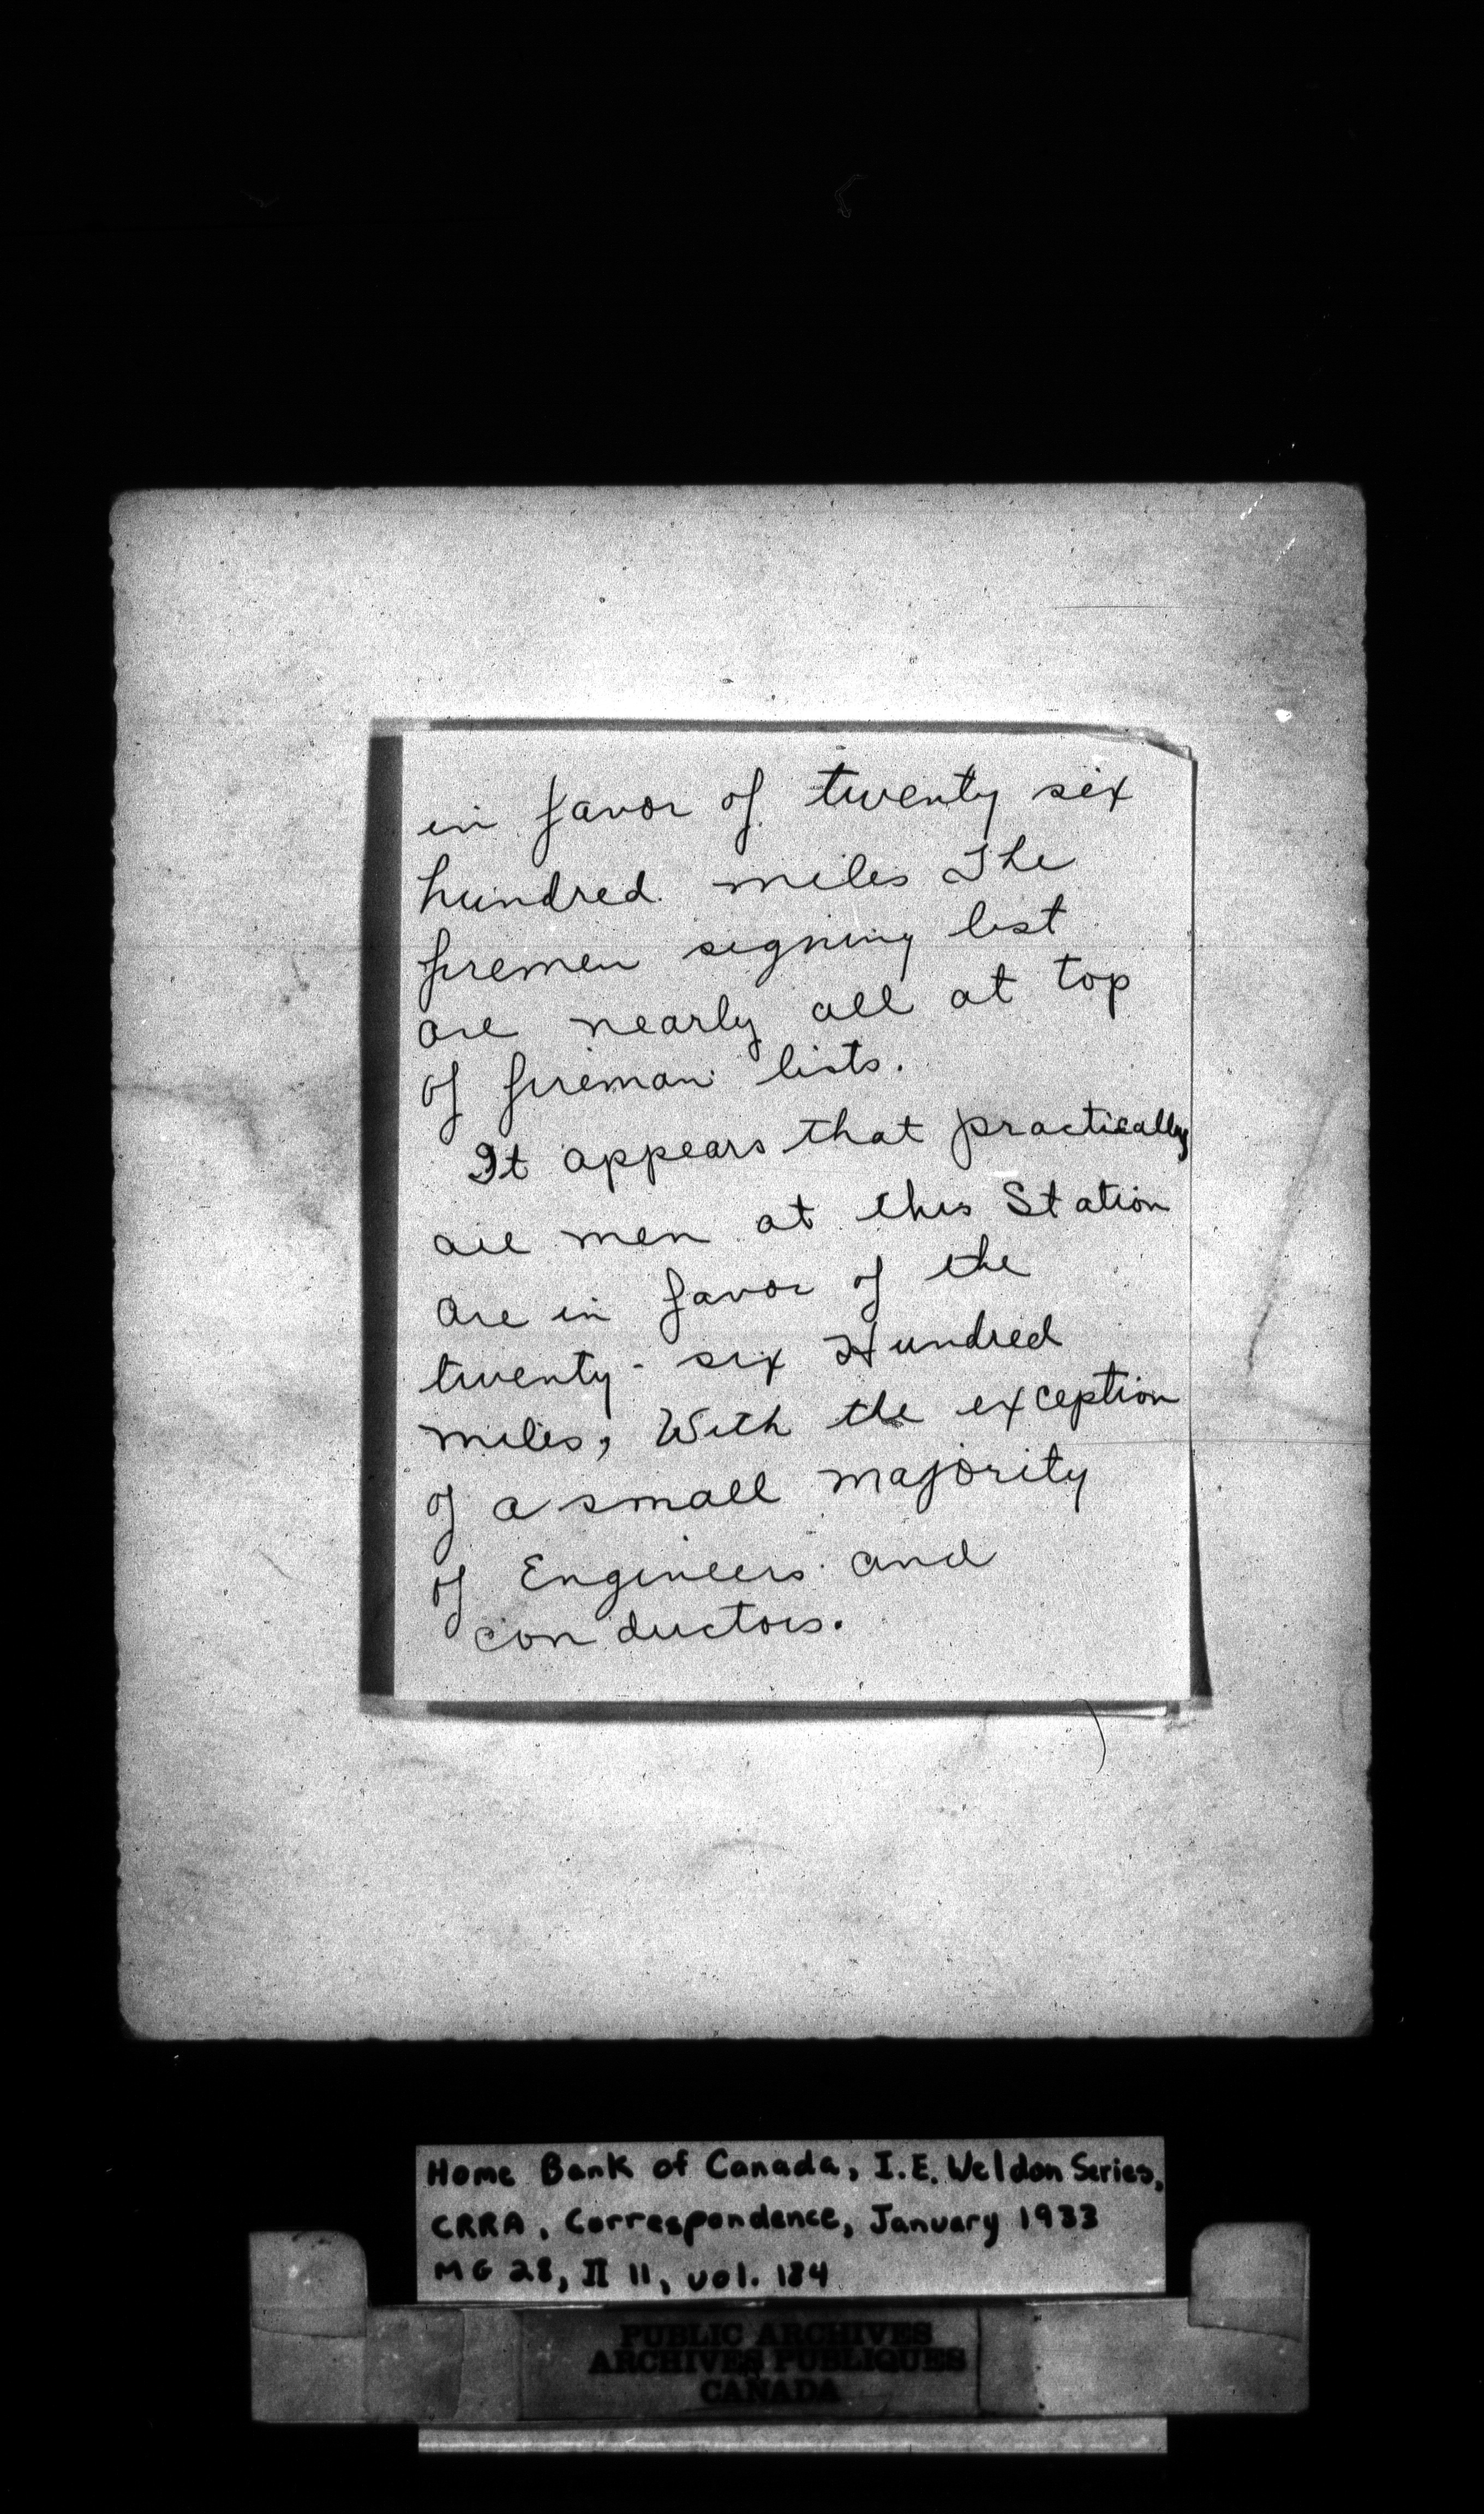 in favor of twenty six
hundred miles The
firemen signing list
are nearly all at top
of fireman lists.
It appears that practically
all men at this Station
are in favor of the
twenty-six Hundred
miles, With the exception
of a small majority
of Engineers and
conductors.
Home Bank of Canada, I.E. Weldon Series,
CRRA, Correspondence, January 1933
MG 28, II 11, vol. 184
PUBLIC ARCHIVES
ARCHIVES PUBLIQUES
CANADA